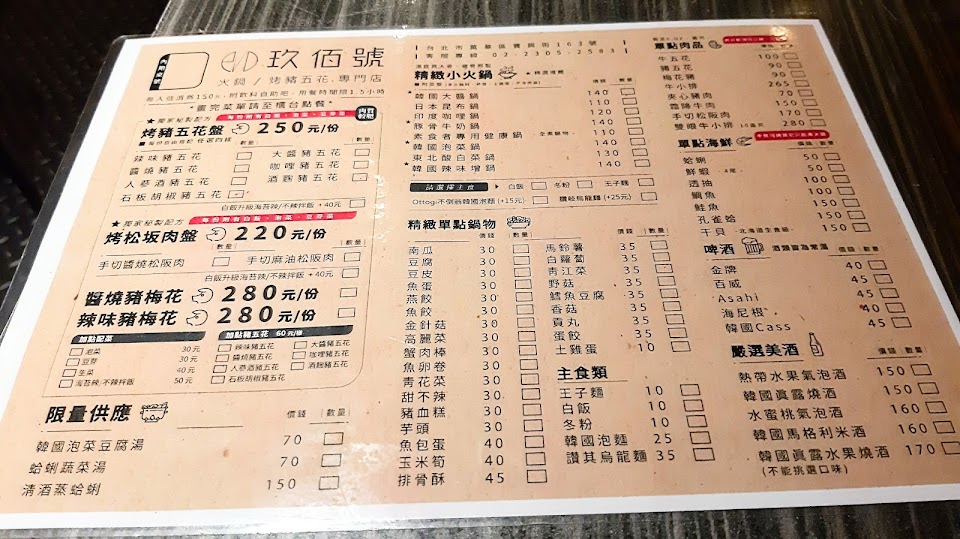 玖佰號
火鍋/烤豬五花 專門店
每人低消為150元,附飲料自助吧,用餐時間限1.5小時
*畫完菜單請至櫃台點餐*
台北市萬華區寶興街163號
客服專線 02-2305-2583
★獨家秘製配方 每份附有白飯、泡菜、豆芽菜
烤豬五花盤 250元/份
數量 數量
辣味豬五花 大醬豬五花
醬燒豬五花 咖哩豬五花
人蔘酒豬五花 酒麴豬五花
石板胡椒豬五花
白飯升級海苔辣/不辣拌飯 +40元
★獨家秘製配方 每份附有白飯、泡菜、豆芽菜
烤松坂肉盤 220元/份
數量 數量
手切醬燒松阪肉 手切麻油松阪肉
白飯升級海苔辣/不辣拌飯 +40元
醬燒豬梅花 280元/份
辣味豬梅花 280元/份
加點配菜
泡菜 30元
豆芽 30元
生菜 40元
海苔辣/不辣拌飯 50元
加點豬五花 60元/條
辣味豬五花 大醬豬五花
醬燒豬五花 咖哩豬五花
人蔘酒豬五花 酒麴豬五花
石板胡椒豬五花
限量供應 價錢 數量
韓國泡菜豆腐湯 70
蛤蜊蔬菜湯 70
清酒蒸蛤蜊 150
精緻小火鍋
價錢 數量
韓國大醬鍋 140
日本昆布鍋 110
印度咖哩鍋 140
★豚骨牛奶鍋 140
素食者專用健康鍋 110
★韓國泡菜鍋 140
東北酸白菜鍋 130
★韓國辣味增鍋 140
請選擇主食 白飯 冬粉 王子麵
Ottogi不倒翁韓國泡麵(+15元) 讚岐烏龍麵(+25元)
精緻單點鍋物
價錢 數量
南瓜 30
豆腐 30
豆皮 30
魚蛋 30
燕餃 30
魚餃 30
金針菇 30
高麗菜 30
蟹肉棒 30
魚卵卷 30
青花菜 30
甜不辣 30
豬血糕 30
芋頭 30
魚包蛋 40
玉米筍 40
排骨酥 45
價錢 數量
馬鈴薯 35
白蘿蔔 35
青江菜 35
野菇 35
鱈魚豆腐 35
香菇 35
貢丸 35
蛋餃 35
土雞蛋 10
主食類
王子麵 10
白飯 10
冬粉 10
韓國泡麵 25
讚其烏龍麵 35
單點肉品
牛五花 100
豬五花 90
梅花豬 90
牛小排 265
夾心豬肉 90
霜降牛肉 150
手切松阪肉 110
雙眼牛小排 300
單點海鮮
價錢 數量
蛤蜊 50
鮮蝦 50
透抽 100
鯛魚 100
鮭魚 150
孔雀蛤 50
干貝 150
啤酒 酒類皆為常溫
價錢 數量
金牌 40
百威 45
Asahi 40
海尼根 40
韓國Cass 45
嚴選美酒 價錢 數量
熱帶水果氣泡酒 150
韓國真露燒酒 150
水蜜桃氣泡酒 160
韓國馬格利米酒 160
韓國真露水果燒酒 170
(不能挑選口味)